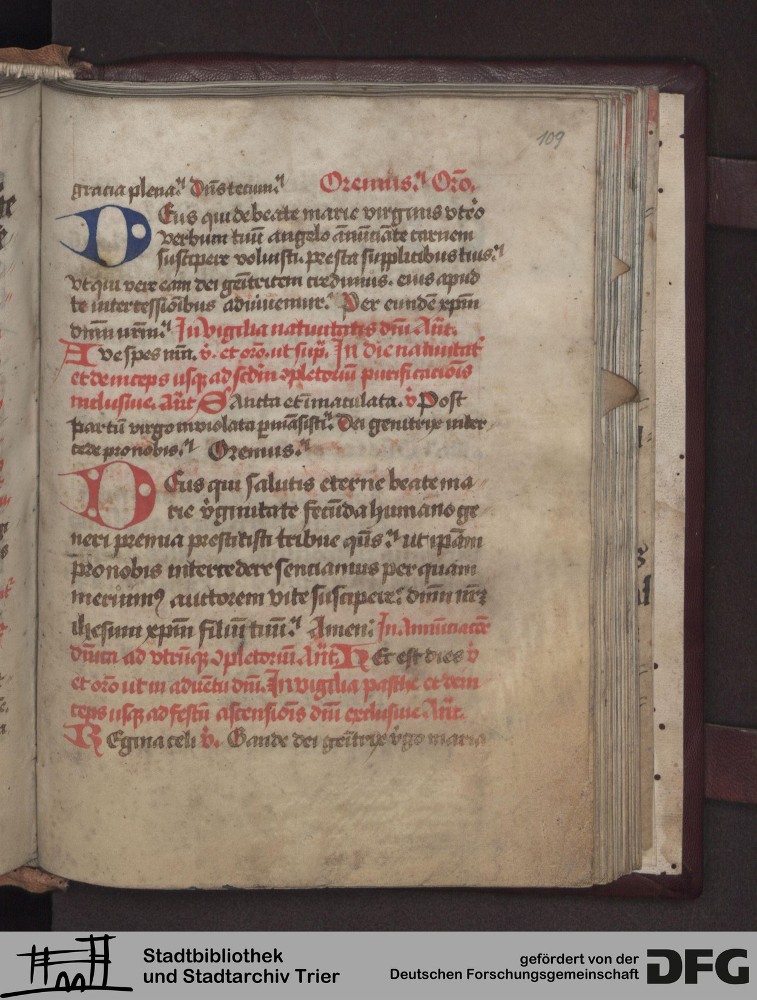 109
gracia plena. Dn̄s tecum. Oremus. Oro.
Deus qui de beate marie virginis vtero
verbum tuū angelo ānūciāte carnem
suscipere voluisti. presta supplicibus tuis.
vt qui vere eam dei geñtricem credimus. eius apud
te intercessiōibus adiuuemur. Per eundē xpm̄
dnm̄ nrm̄. In vigilia natiuitatis dnī Añt.
Aue spes nrā. v̄. et oro. ut sup̄. In die natiuitat̄
et deinceps usq; ad scdm̄ ɔpletoriū purificaciōis
inclusiue. Añt Sancta et īmaculata. v̄ Post
partū virgo inuiolata ꝑmāsisti. Dei genitrix inter
cede pro nobis. Oremus.
Deus qui salutis eterne beate ma
rie v̄ginitate fecūda humano ge
neri premia prestitisti tribue qs̄. ut ipām
pro nobis intercedere senciamus per quam
meruimꝰ auctorem vite suscipere. dnm̄ nrm̄
ihesum xpm̄ filiū tuū. Amen. In Annūciacōe
dn̄ica ad vtrūq; ɔpletoriū. Añt. Hec est dies v̄
et oro ut in aduētu dnī. In vigilia pasche et dein
ceps usq; ad festū ascensiōis dnī exclusiue Añt.
Regina celi v̄. Gaude dei geñtrix v̄go maria
Stadtbibliothek
und Stadtarchiv Trier
gefördert von der
Deutschen Forschungsgemeinschaft
DFG